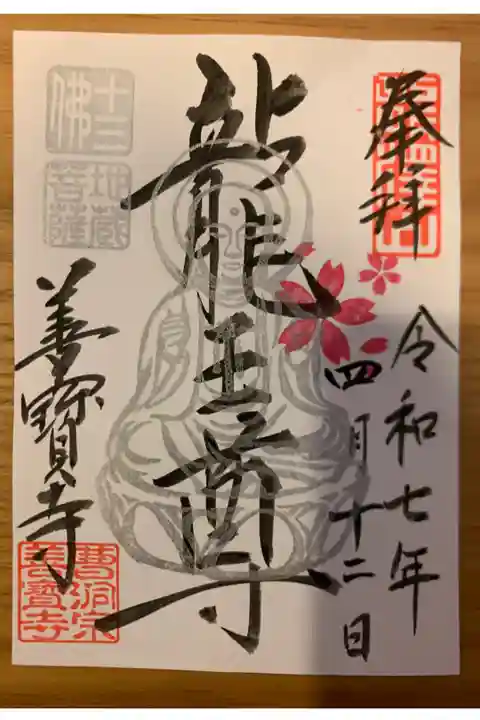 奉拝
令和七年
四月十二日
龍王尊
善寳寺
十三佛
地蔵菩薩
曹洞宗
善寳寺